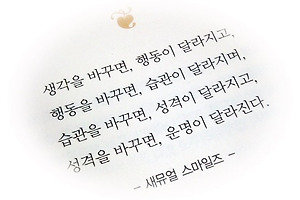 생각을 바꾸면, 행동이 달라지고,
행동을 바꾸면, 습관이 달라지며,
습관을 바꾸면, 성격이 달라지고,
성격을 바꾸면, 운명이 달라진다.
- 새뮤얼 스마일즈 -